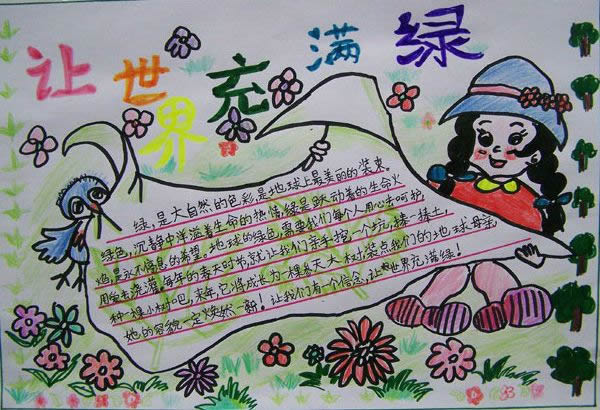 让世界充满绿
绿,是大自然的色彩,是地球上最美的的装束。
绿色,沉静中洋溢着生命的热情,绿是跃动着的生命火
焰,是永不停息的希望。地球的绿色,需要我们每个人用心去呵护,
用去浇灌。每年的春天时节,就让我们亲手挖一个坑,捧一捧土,
种一棵小树吧,来年,它将成长为一棵参天大树,装点我们的地球母亲,
她的容貌一定焕然一新!让我们有一个信念,让世界充满绿!